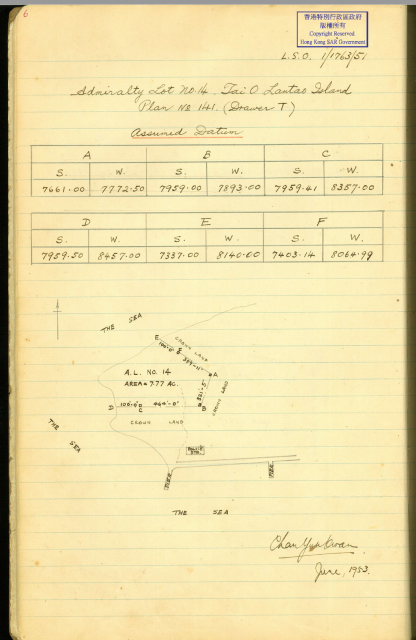 6
香港特別行政區政府
版權所有
Copyright Reserved
Hong Kong SAR Government
L.S.O. 1/1763/51
Admiralty Lot No 14 Tai O Lantao Island
Plan No 141. (Drawer T)
Assumed Datum
A B C
S. W. S. W. S. W.
7661.00 7772.50 7959.00 7893.00 7959.41 8357.00
D E F
S. W. S. W. S. W.
7959.50 8457.00 7337.00 8140.00 7403.14 8064.99
THE SEA
E
CROWN LAND
100'-0"
F
A
A.L. NO. 14
AREA = 7.77 AC.
CROWN LAND
D 100'-0" C 464'-0" B
CROWN LAND
THE SEA
PIER
PIER
THE SEA
Chan Yuk Kwan
June, 1953.